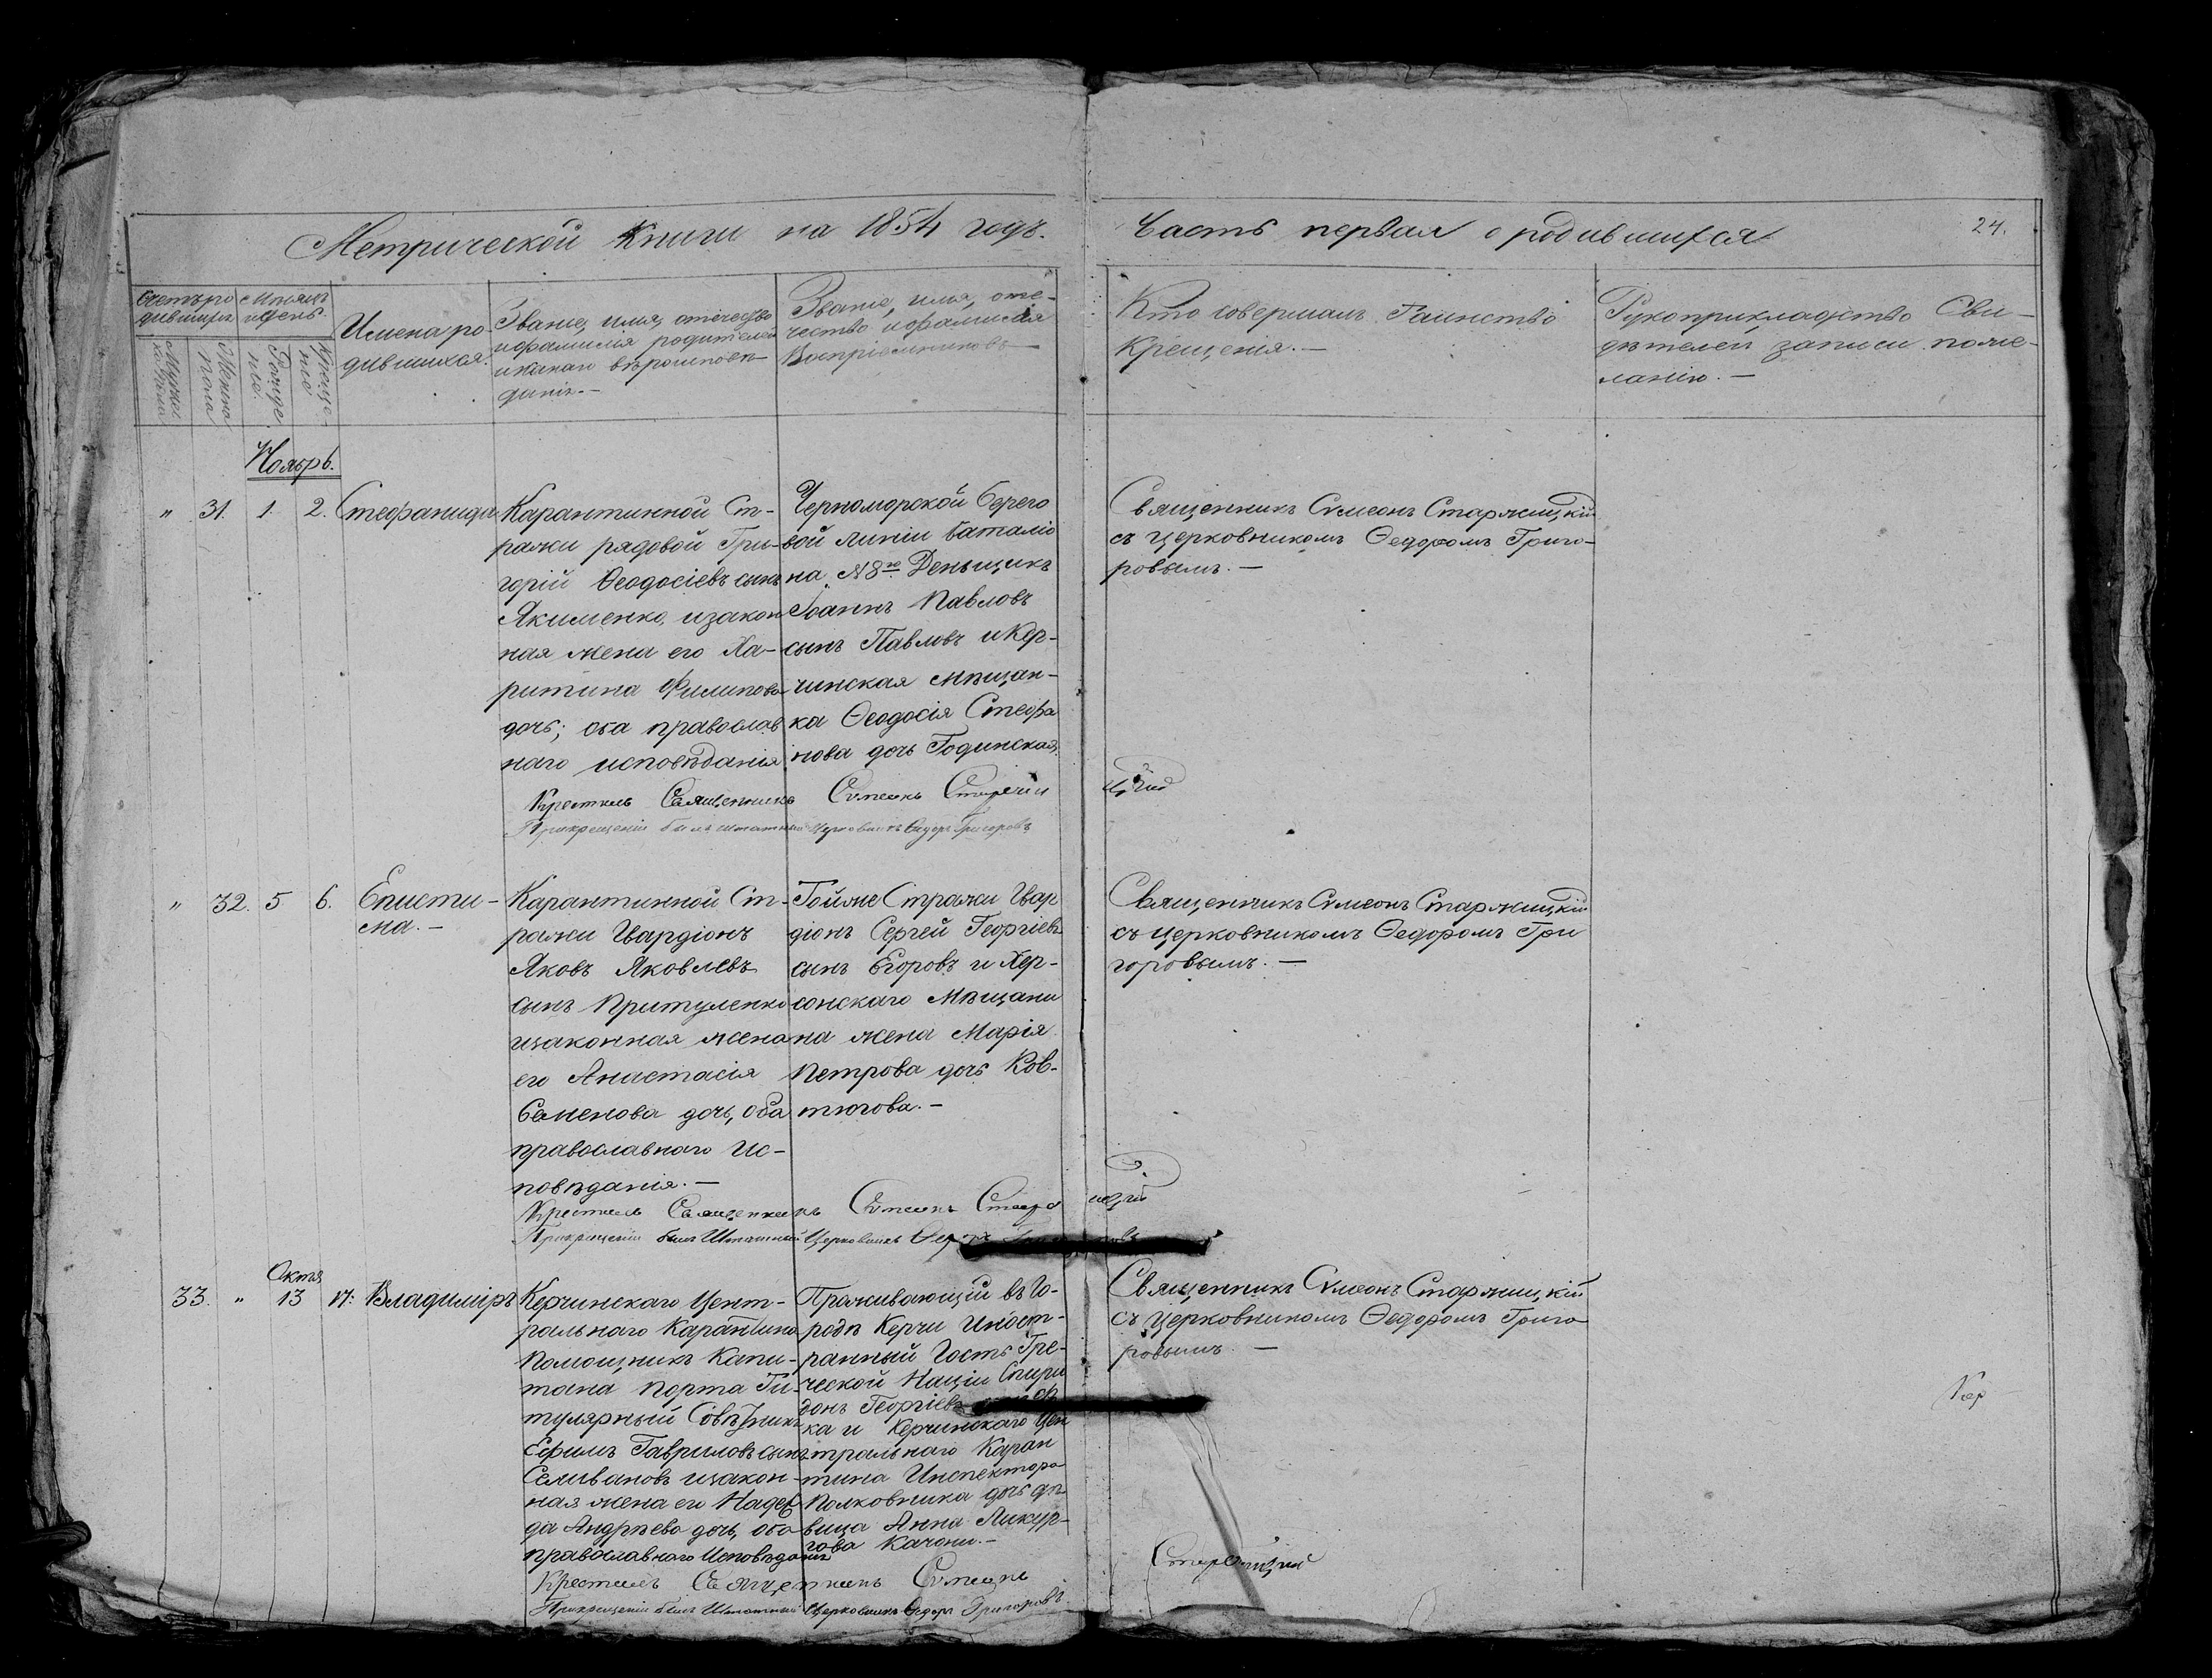 Метрической Книги на 1854 годъ.
Часть первая о родившихся
24.
Счетъ ро-
дившихся
Мужеска
Женска
пола
Мѣсяцъ
и день.
Рожде-
нія.
Креще-
нія
Имена ро-
дившихся.
Званіе, имя, отечество
и фамилія родителей
и какого вѣроисповѣ-
данія.—
Званіе, имя, оте-
чество и фамилія
Воспріемниковъ—
Кто совершалъ Таинство
Крещенія.—
Рукоприкладство Сви-
дѣтелей записи по же-
ланію.—
Ноябрь.
" 31. 1. 2. Стефанида
Карантинной Ст-
ражи рядовой Гри-
горій Ѳеодосіевъ сынъ
Якименко, и закон-
ная жена его Ха-
ритина Филипова
дочь; оба православ
наго исповѣданія
Черноморской берего
вой линіи баталіо
на №8го Деньщикъ
Іоаннъ Павловъ
сынъ Павловъ и Кер-
чинская мѣщан-
ка Ѳеодосія Стефа
нова дочь Годинская.
Священникъ Сѵмеонъ Старжицкій
съ церковникомъ Ѳедоромъ Григо-
ровымъ.—
Крестилъ Священникъ Сѵмеонъ Старжицкій
При крещеніи былъ штатный Церковникъ Ѳедоръ Григоровъ
" 32. 5 6. Еписти-
ма.—
Карантинной Ст-
ражи Гвардіонъ
Яковъ Яковлевъ
сынъ Притуленко
и законная жена
его Анастасія
Семенова дочь, оба
православнаго Ис-
повѣданія.—
Той же Стражи Гвар
діонъ Сергей Георгіевъ
сынъ Егоровъ и Хер-
сонскаго Мѣщани
на жена Марія
Петрова дочь Ков-
тюгова.—
Священникъ Сѵмеонъ Старжицкій
съ церковникомъ Ѳедоромъ Гри
горовымъ.—
Крестилъ Священникъ Сѵмеонъ Старжицкій
При крещеніи былъ Штатный Церковникъ Ѳедоръ
33. " Октя 13 17. Владиміръ
Керчинскаго Цент-
ральнаго Карантина
Помощникъ Капи-
тана Порта Ти-
тулярный Совѣтникъ
Ефимъ Гавриловъ сынъ
Селивановъ и закон-
ная жена его Надеж
да Андрѣева дочь, оба
православнаго Исповѣданія
Проживающій въ Го-
родѣ Керчи Иност-
ранный Гость Гре-
ческой Націи Спири
донъ Георгіевъ
ка и Керчинскаго Цен
тральнаго Каран
тина Инспектора
Полковника дочь дѣ-
вица Анна Ликур-
гова Качони.—
Священникъ Сѵмеонъ Старжицкій
съ Церковникомъ Ѳедоромъ Григо
ровымъ.—
Кер
Крестилъ Священникъ Сѵмеонъ Старжицкій
При крещеніи былъ Штатный Церковникъ Ѳедоръ Григоровъ